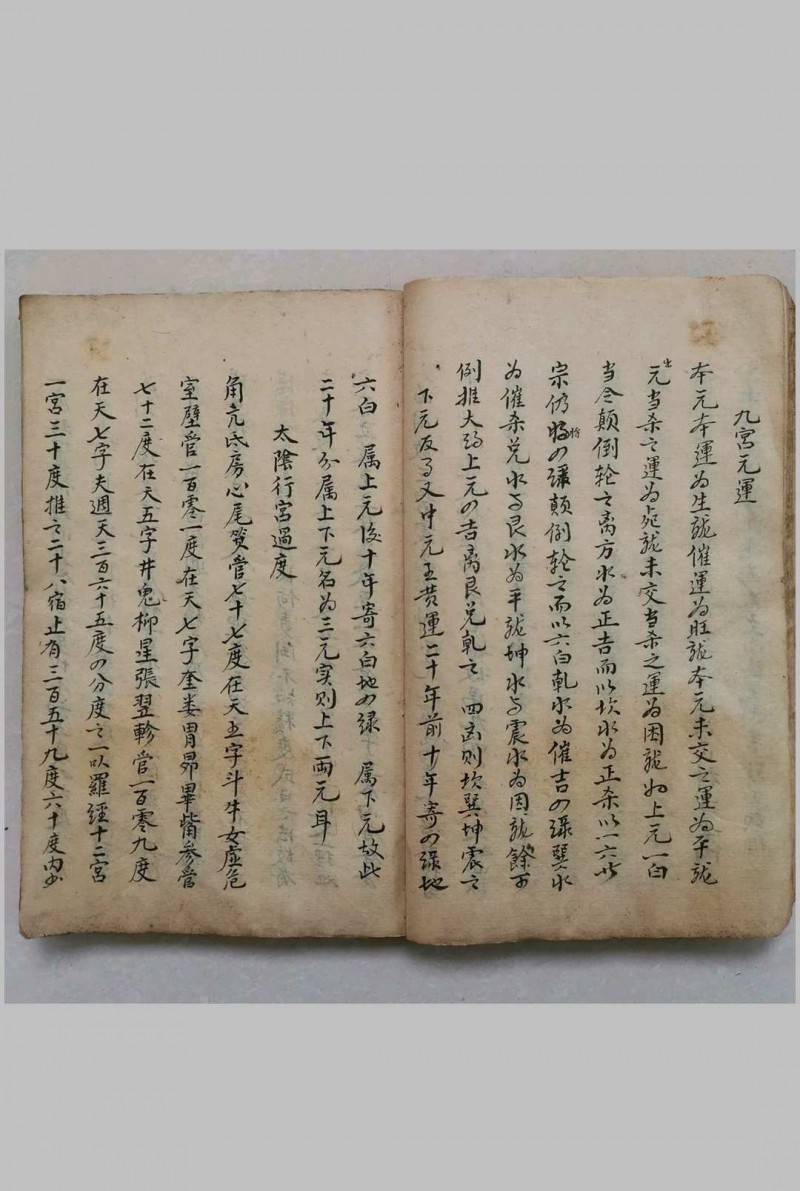 九宮元運
本元本運為生龍催運為旺龍本元未交之運為平龍
元当杀之運為死龍未交当杀之運為困龍如上元一白
当令顛倒轮之离方水為正吉而以坎水為正杀以一六
宗仍将四绿顛倒轮之而以六白乾水為催吉四绿巽水
為催杀兑水与艮水為平龍坤水与震水為困龍餘可
例推大約上元四吉离艮兑乾之四凶则坎巽坤震之
下元反与又中元五黄運二十年前十年寄四绿地
六白属上元後十年寄六白地四绿属下元故此
二十年分属上下元名為三元实则上下両元耳
太陰行宮過度
角亢氐房心尾箕管七十七度在天五字斗牛女虚危
室壁管一百零一度在天七字奎娄胃昴畢觜参管
七十二度在天五字井鬼柳星張翌軫管一百零九度
在天七字夫週天三百六十五度四分度之一以羅經十二宮
一宮三十度推之二十八宿止有三百五十九度六十度内少